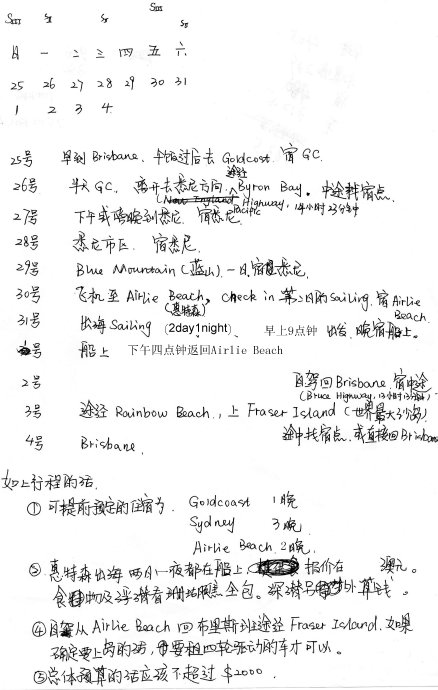 SIII
SIII SII SI SII
日 一 二 三 四 五 六
25 26 27 28 29 30 31
1 2 3 4
25号 早到 Brisbane. 午饭过后去 Goldcost. 宿 GC.
26号 半天 GC, 离开去悉尼方向. 途经 Byron Bay. 中途找宿点.
(Pacific Highway, 14小时23分钟
27号 下午或傍晚到悉尼. 宿悉尼.
28号 悉尼市区. 宿悉尼.
29号 Blue Mountain (蓝山). 一日 宿悉尼.
30号 飞机至 Airlie Beach, Check in 第2日的 Sailing. 宿 Airlie Beach.
31号 出海 Sailing (惠特森) (2day1night)、 早上9点钟 出发. 晚宿船上。
号 船上 下午四点钟返回Airlie Beach
2号 自驾回 Brisbane. 宿中途
(Bruce Highway, 13小时13分钟)
3号 途经 Rainbow Beach., 上 Fraser Island (世界最大沙岛)
途中找宿点. 或直接回 Brisban
4号 Brisbane.
如上行程的话.
① 可提前预定的住宿为. Goldcoast 1晚
Sydney 3晚.
Airlie Beach. 2晚.
③ 惠特森出海 两日一夜都在船上. 报价在 澳元。
食物及浮潜看珊瑚礁全包。深潜另外算钱。
④ 自驾从 Airlie Beach 回布里斯班途经 Fraser Island. 如果
确定要上岛的话, 要租四轮驱动的车才可以。
⑤ 总体预算的话应该不超过 $2000.